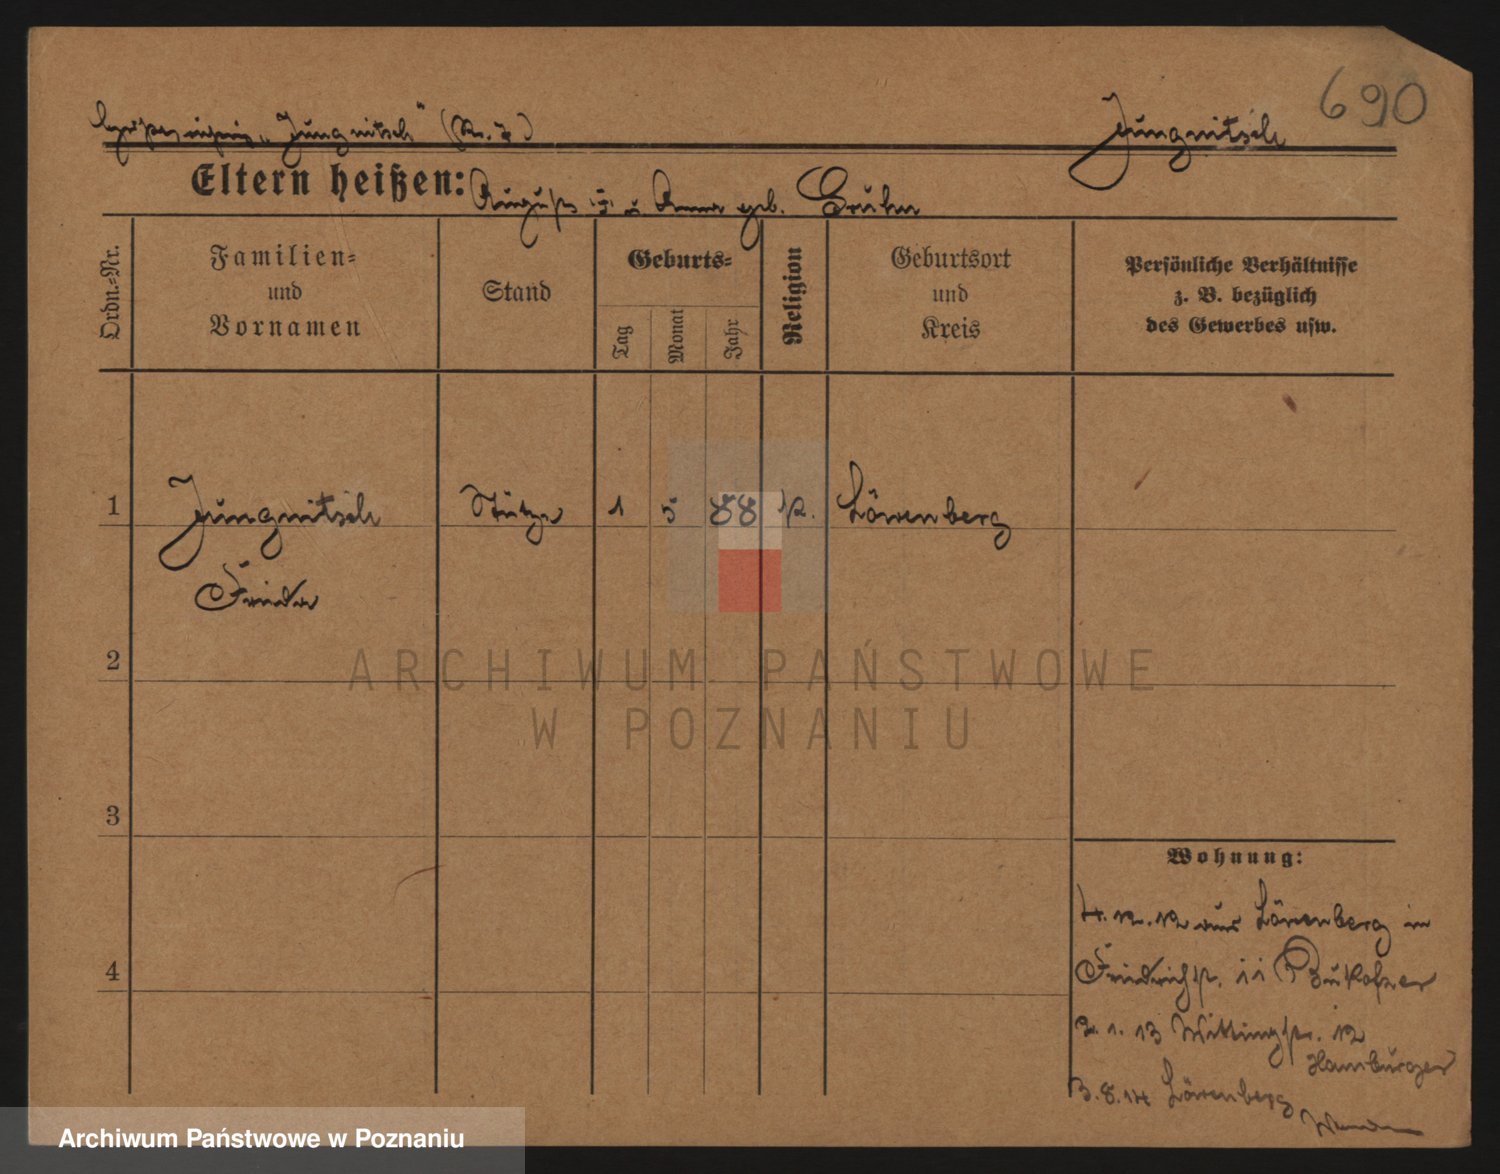 690
"Jungnitsch"
Jungnitsch
Eltern heißen: August u. Anna geb. Gruhn
Ordn.-Nr.
Familien-
und
Vornamen
Stand
Geburts-
Tag
Monat
Jahr
Religion
Geburtsort
und
Kreis
Persönliche Verhältnisse
z. B. bezüglich
des Gewerbes usw.
1 Jungnitsch Stütze 1 5 88 Löwenberg
Frieda
2
ARCHIWUM PAŃSTWOWE
W POZNANIU
3
Wohnung:
4.12.12 aus Löwenberg in
4
Friedrichstr. 11 Bukofzer
2.1.13 Wittingstr. 12
Hamburger
3.8.14 Löwenberg
Archiwum Państwowe w Poznaniu